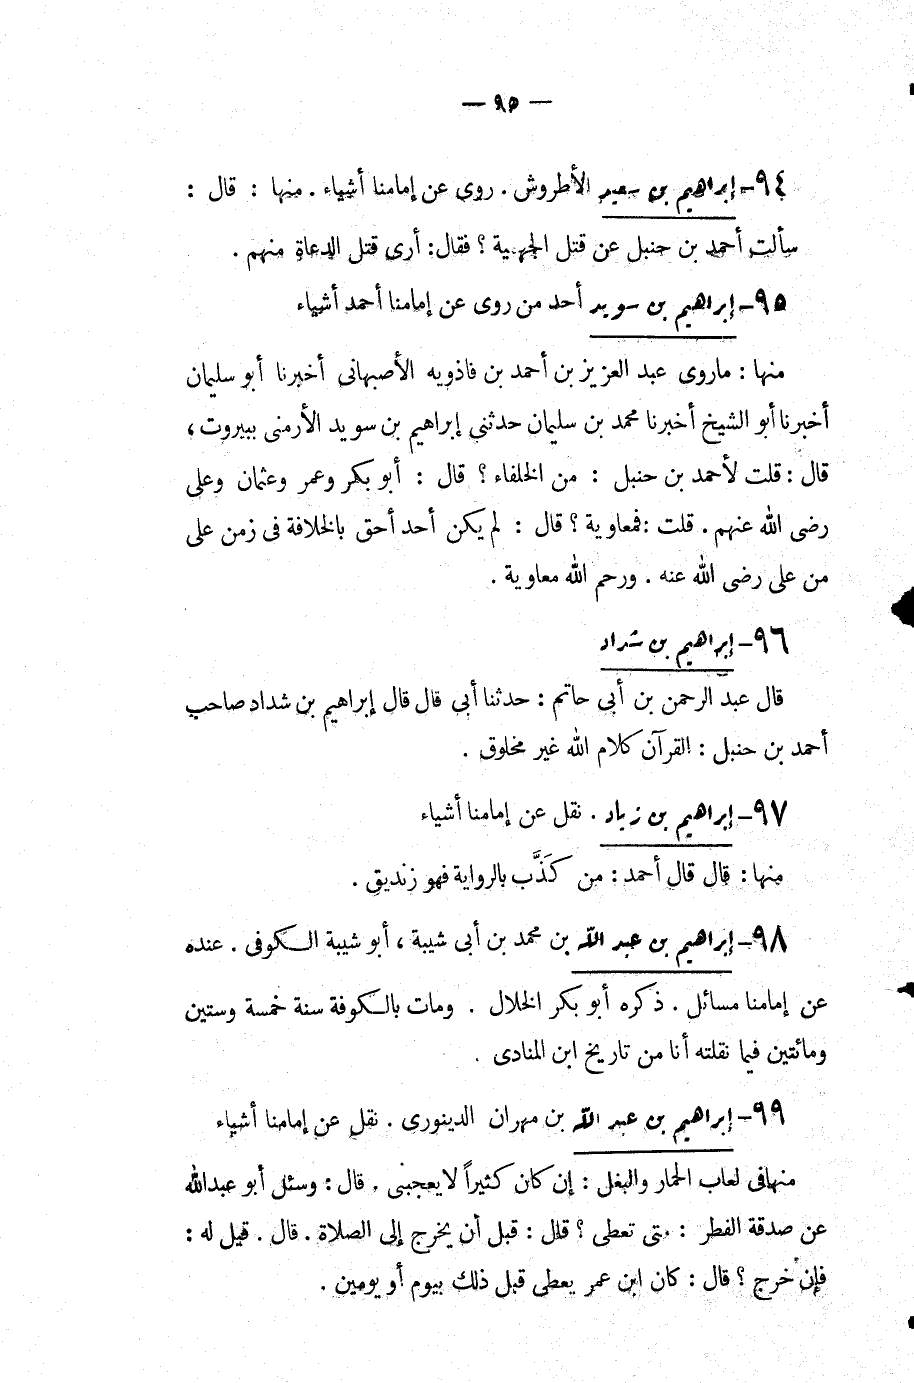 — ٩٥ —
٩٤ – إبراهيم بن سعيد الأطروش . روى عن إمامنا أشياء . منها : قال :
سألت أحمد بن حنبل عن قتل الجهمية ؟ فقال : أرى قتل الدعاة منهم .
٩٥ – إبراهيم بن سويد أحد من روى عن إمامنا أحمد أشياء
منها : ماروى عبد العزيز بن أحمد بن فاذويه الأصبهانى أخبرنا أبو سليمان
أخبرنا أبو الشيخ أخبرنا محمد بن سليمان حدثني إبراهيم بن سويد الأرمنى ببيروت ،
قال : قلت لأحمد بن حنبل : من الخلفاء ؟ قال : أبو بكر وعمر وعثمان وعلى
رضى الله عنهم . قلت : فمعاوية ؟ قال : لم يكن أحد أحق بالخلافة فى زمن على
من على رضى الله عنه . ورحم الله معاوية .
٩٦ – إبراهيم بن شداد
قال عبد الرحمن بن أبى حاتم : حدثنا أبي قال قال إبراهيم بن شداد صاحب
أحمد بن حنبل : القرآن كلام الله غير مخلوق .
٩٧ – إبراهيم بن زياد . نقل عن إمامنا أشياء
منها : قال قال أحمد : من كذَّب بالرواية فهو زنديق .
٩٨ – إبراهيم بن عبد الله بن محمد بن أبى شيبة ، أبو شيبة الكوفى . عنده
عن إمامنا مسائل . ذكره أبو بكر الخلال . ومات بالكوفة سنة خمسة وستين
ومائتين فيما نقلته أنا من تاريخ ابن المنادى .
٩٩ – إبراهيم بن عبد الله بن مهران الدينورى . نقل عن إمامنا أشياء
منهافى لعاب الحمار والبغل : إن كان كثيراً لايعجبنى . قال : وسئل أبو عبدالله
عن صدقة الفطر : متى تعطى ؟ قال : قبل أن يخرج إلى الصلاة . قال . قيل له :
فإن خرج ؟ قال : كان ابن عمر يعطى قبل ذلك بيوم أو يومين .